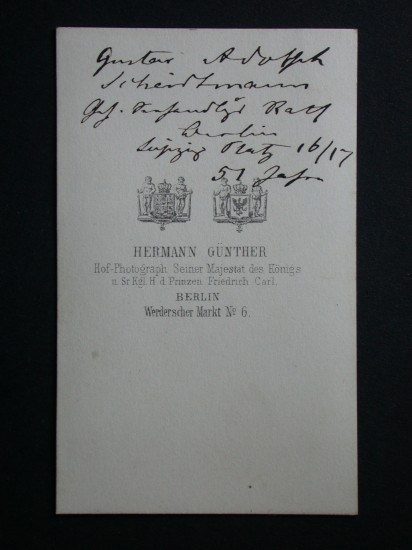 Gustav Adolph
Scheidtmann
Geh. Rath
Berlin
Leipzig Platz 16/17
51 Jahre
HERMANN GÜNTHER
Hof-Photograph Seiner Majestät des Königs
u. Sr. Kgl. H. d. Prinzen Friedrich Carl.
BERLIN
Werderscher Markt No 6.